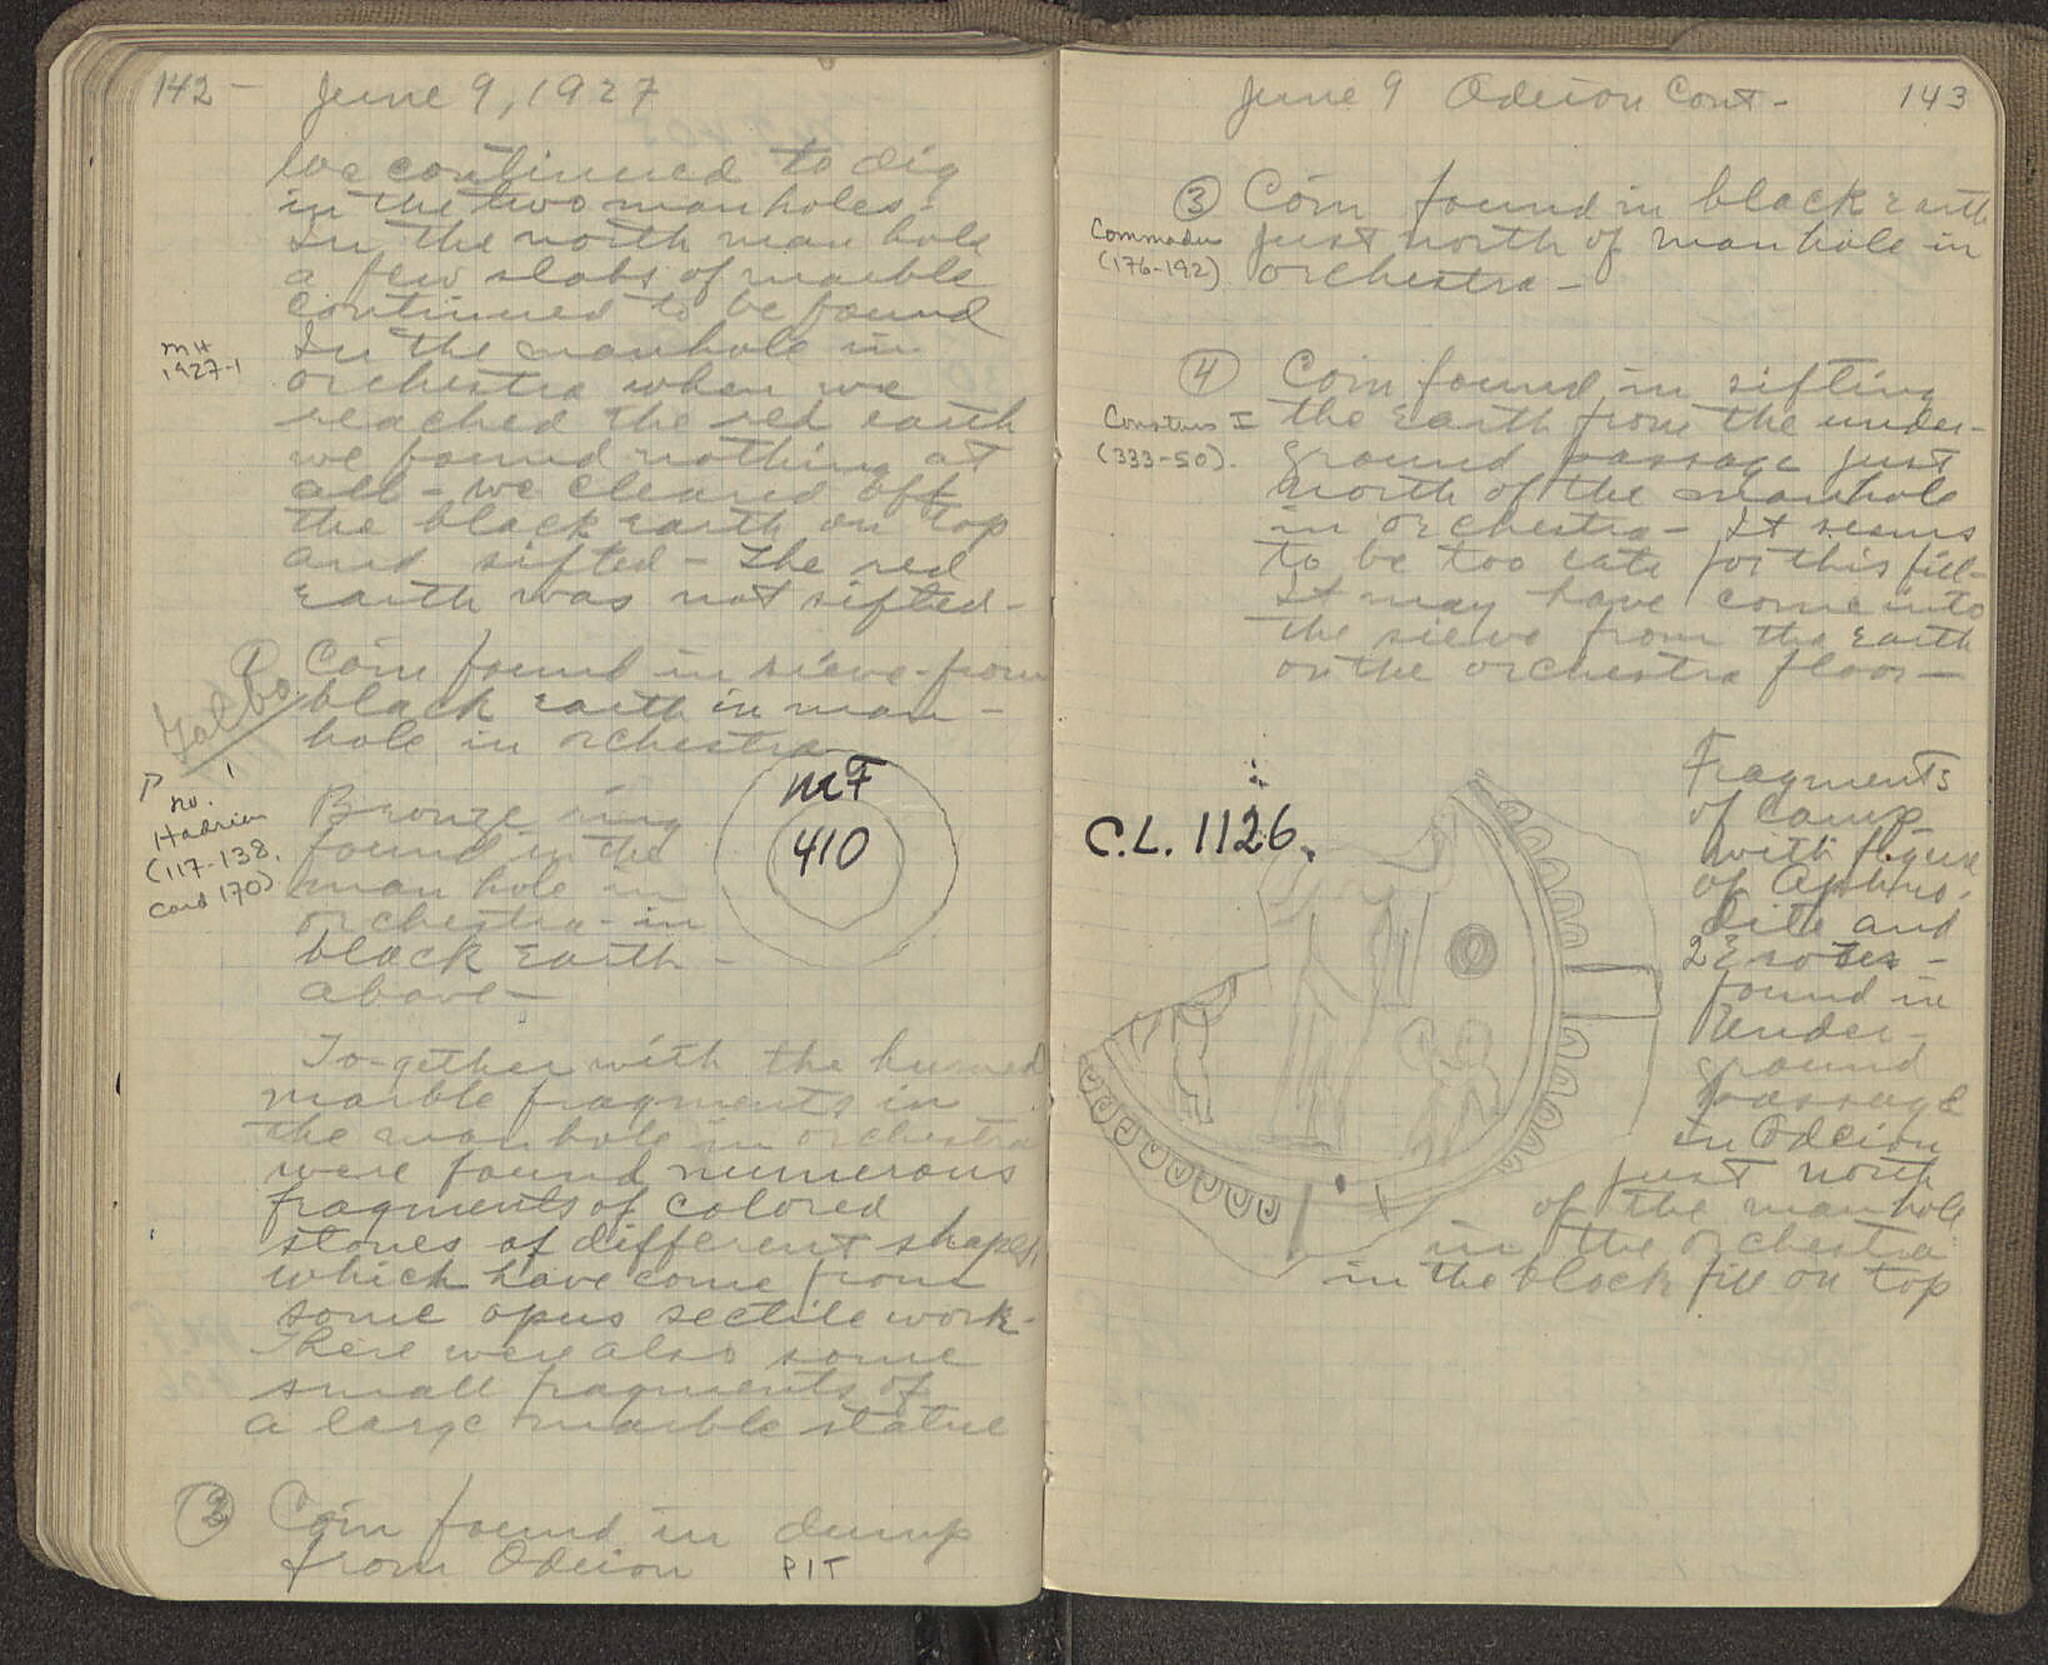 142 - June 9, 1927
We continued to dig
in the two manholes -
In the north man hole
a few slabs of marble
continued to be found
MH
1927-1
In the manhole in
orchestra when we
reached the red earth
we found nothing at
all - we cleared off
the black earth on top
and sifted - The red
earth was not sifted -
① Coin found in sieve - from
black earth in man -
hole in orchestra
Galba
P no. 1
Hadrian
(117-138,
Card 170)
Bronze ring
found in the
man hole in
orchestra - in
black earth -
above -
MF
410
To-gether with the burned
marble fragments in
the manhole in orchestra
were found numerous
fragments of colored
stones of different shapes,
which have come from
some opus sectile work -
There were also some
small fragments of
a large marble statue
② Coin found in dump
from Odeion PIT
June 9 Odeion Cont - 143
③ Coin found in black earth
just north of man hole in
orchestra -
Commodus
(176-192)
④ Coin found in sifting
the earth from the under-
ground passage just
north of the manhole
in orchestra - It seems
to be too late for this fill -
It may have come into
the sieve from the earth
on the orchestra floor -
Constans I
(333-50).
C.L. 1126.
Fragments
of Lamp
with figure
of Aphro-
dite and
2 Erotes -
found in
Under-
ground
passage
in Odeion
just north
of the manhole
in the orchestra
in the black fill on top